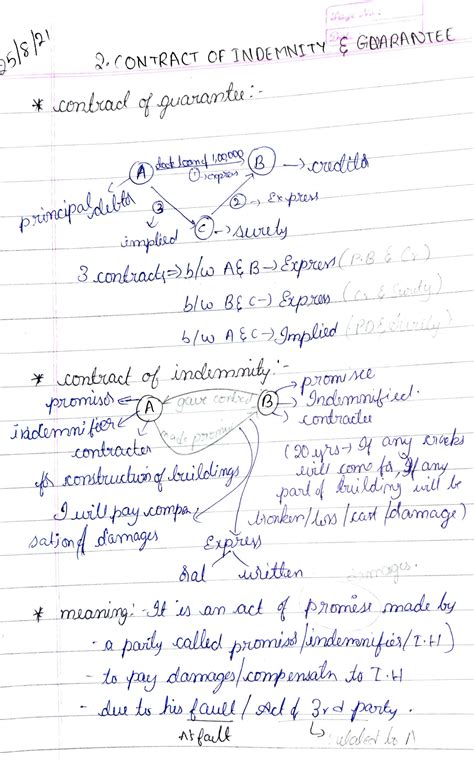 25/8/21
2. CONTRACT OF INDEMNITY & GUARANTEE
* contract of guarantee:-
A took loan of 1,00,000 B → creditor
① → express
principal debtor
③ ② → Express
implied C → surety
3 contracts ⇒ b/w A & B → Express (P.B & Cr)
b/w B & C → Express (Cr & Surety)
b/w A & C → Implied (PD & Surety)
* contract of indemnity:-
promisor A gave contract B → promisee
indemnifier made promise → Indemnified.
contractor → contractee
for construction of buildings
(20 yrs → If any cracks
will come for, If any
part of building will be
broken / loss / cost / damage)
I will pay compen
sation of damages
Express
oral written
damages.
* meaning:- It is an act of promise made by
- a party called promisor/indemnifier/I.H)
- to pay damages/compensatn to I.H
- due to his fault / Act of 3rd party.
At fault ↳ related to A